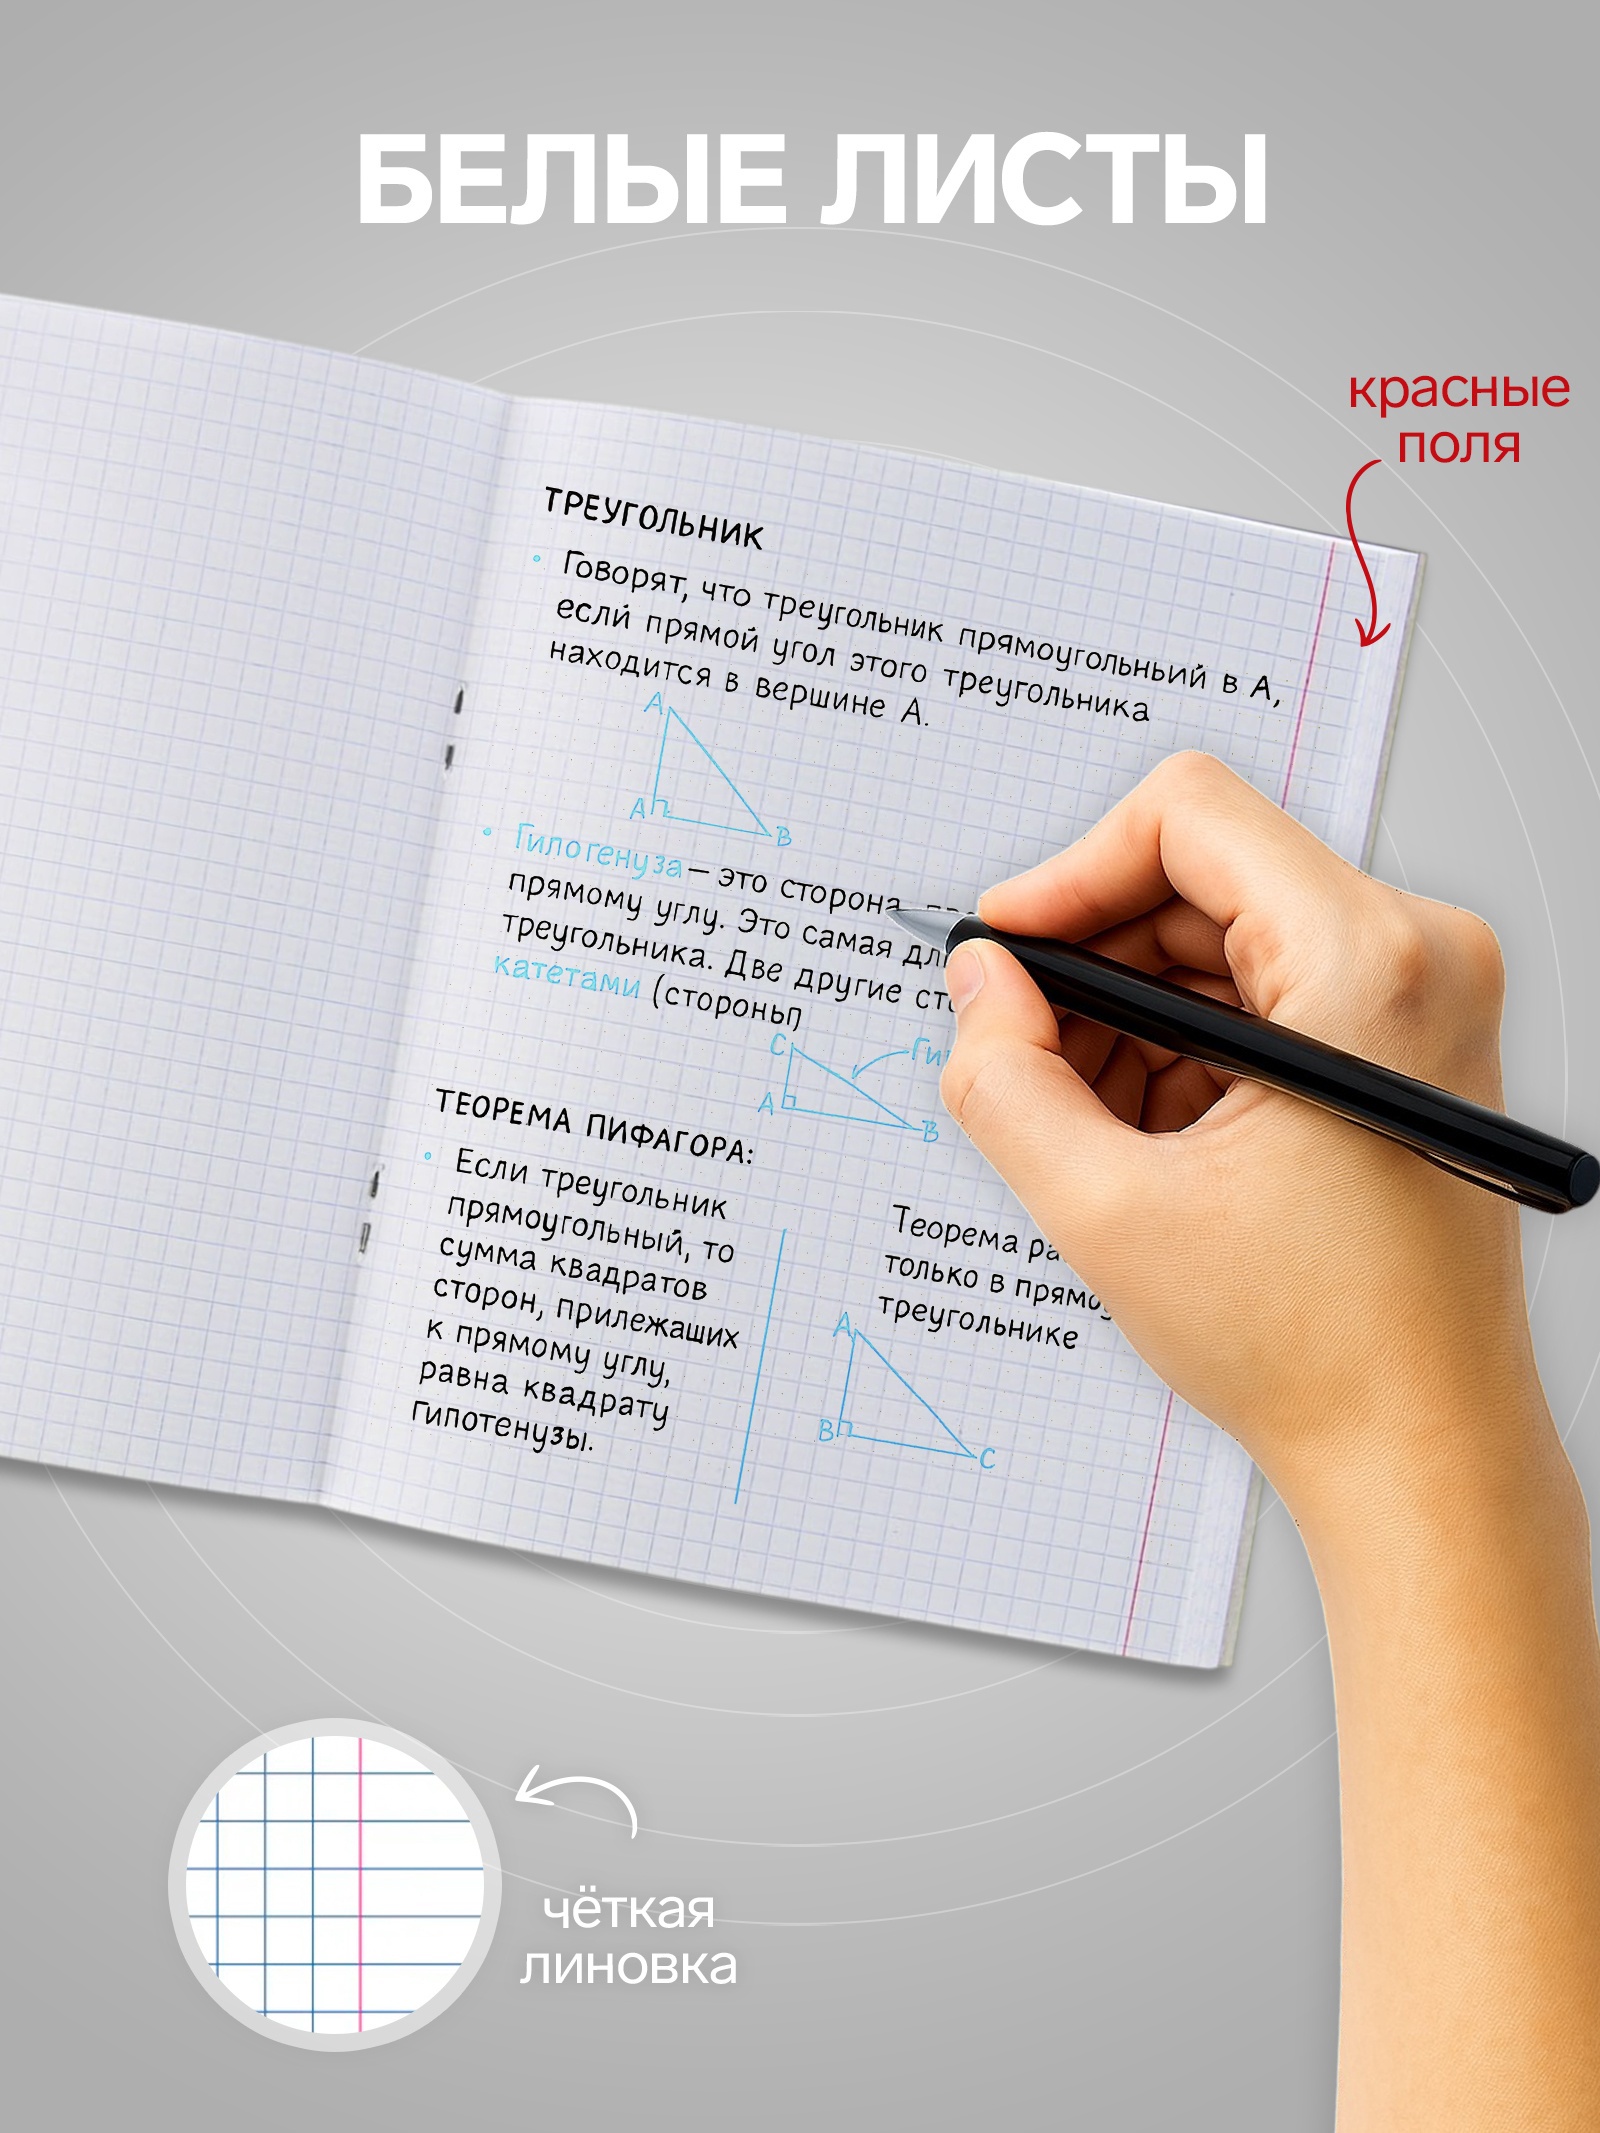 БЕЛЫЕ ЛИСТЫ
красные
поля
ТРЕУГОЛЬНИК
• Говорят, что треугольник прямоугольньий в А,
если прямой угол этого треугольника
находится в вершине А.
А
А В
• Гилогенуза — это сторона,
прямому углу. Это самая
треугольника. Две другие
катетами (стороны)
С
А В
ТЕОРЕМА ПИФАГОРА:
• Если треугольник
прямоугольный, то
сумма квадратов
сторон, прилежаших
к прямому углу,
равна квадрату
гипотенузы.
Теорема
только в
треугольнике
А
В С
чёткая
линовка